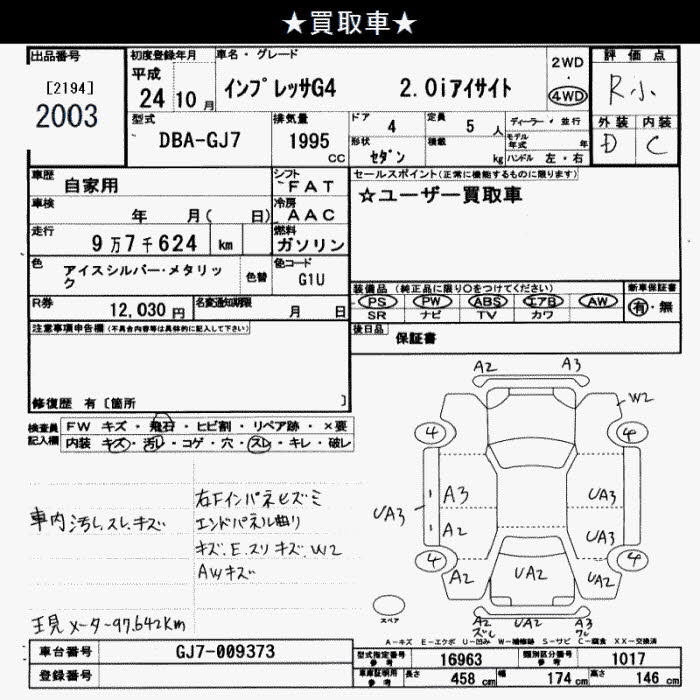 ★買取車★
出品番号 初度登録年月 車名・グレード 2WD・4WD 評価点
[2194] 2003 平成 24年 10月 インプレッサG4 2.0iアイサイト R小
型式 DBA-GJ7 排気量 1995 CC ドア 4 定員 5 人 ディーラー・並行 外装 内装
形状 セダン 積載 kg モデル年式 年 ハンドル 左・右 D C
車歴 自家用 シフト FAT セールスポイント(正常に機能するものに限ります)
車検 年 月( 日) 冷房 AAC ☆ユーザー買取車
走行 9万7千624 km 燃料 ガソリン
色 アイスシルバー・メタリック 色替 色コード G1U
装備品 (純正品に限り○をつけてください) 新車保証書
PS PW ABS エアB AW 有・無
SR ナビ TV カワ
R券 12,030円 名変通知期限 月 日
後日品 保証書
注意事項申告欄(不具合内容等は具体的に記入して下さい)
修復歴 有[箇所 ]
検査員記入欄 FW キズ・飛石・ヒビ割・リペア跡・×要
内装 キズ・汚レ・コゲ・穴・スレ・キレ・破レ
車内汚し,スレ,キズ
右Fインパネヒズミ
エンドパネル曲り
キズ.E.スリキズ.W2
AWキズ
現メーター97.642Km
A2 A3
W2
4 4
A3 UA3
UA3
A2 UA3
4 4
A2 UA2 UA2
スペア
A2 ズレ UA2 A3 ワレ
A-キズ E-エクボ U-凹み W-補修跡 S-サビ C-腐食 XX-交換済
車台番号 GJ7-009373
登録番号
型式指定番号 参考 16963 類別区分番号 参考 1017
車庫証明用 参考 長さ 458 cm 幅 174 cm 高さ 146 cm